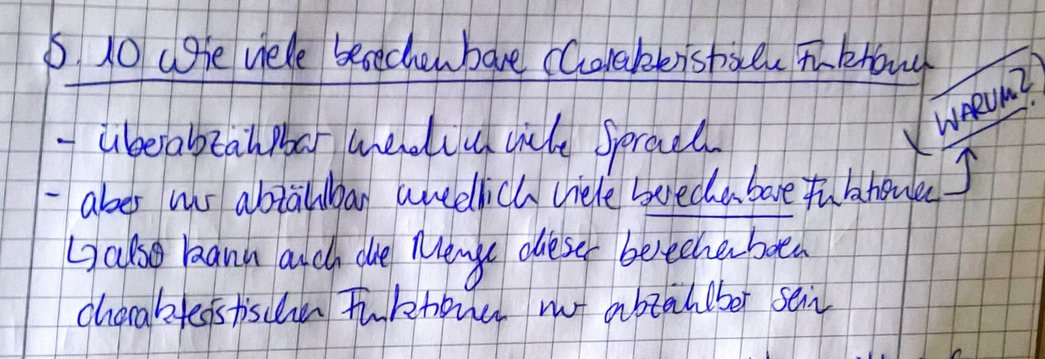 S. 10 Wie viele berechenbare Charakteristische Funktionen
WARUM?
- überabzählbar unendlich viele Sprachen
- aber nur abzählbar unendlich viele berechenbare Funktionen
↳ also kann auch die Menge dieser berechenbaren
charakteristischen Funktionen nur abzählbar sein